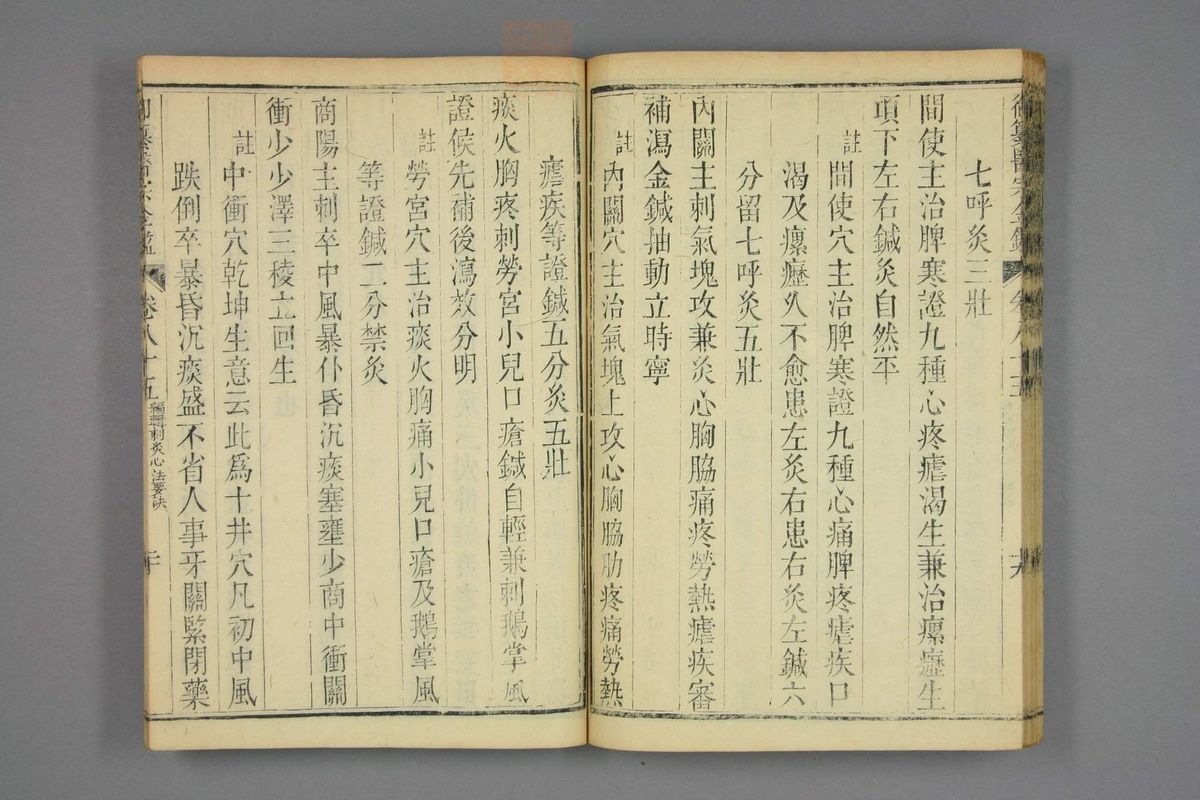 七呼灸三壯
間使主治脾寒證九種心疼瘧渴生兼治瘰癧生
項下左右鍼灸自然平
註間使穴主治脾寒證九種心痛脾疼瘧疾口
渴及瘰癧久不愈患左灸右患右灸左鍼六
分留七呼灸五壯
內關主刺氣塊攻兼灸心胸脇痛疼勞熱瘧疾審
補瀉金鍼抽動立時寧
註內關穴主治氣塊上攻心胸脇肋疼痛勞熱
瘧疾等證鍼五分灸五壯
痰火胸疼刺勞宮小兒口瘡鍼自輕兼刺鵝掌風
證候先補後瀉效分明
註勞宮穴主治痰火胸痛小兒口瘡及鵝掌風
等證鍼二分禁灸
商陽主刺卒中風暴仆昏沉痰塞壅少商中衝關
衝少少澤三稜立回生
註中衝穴乾坤生意云此爲十井穴凡初中風
跌倒卒暴昏沉痰盛不省人事牙關緊閉藥
御纂醫宗金鑑
卷八十五
編輯刺灸心法要訣